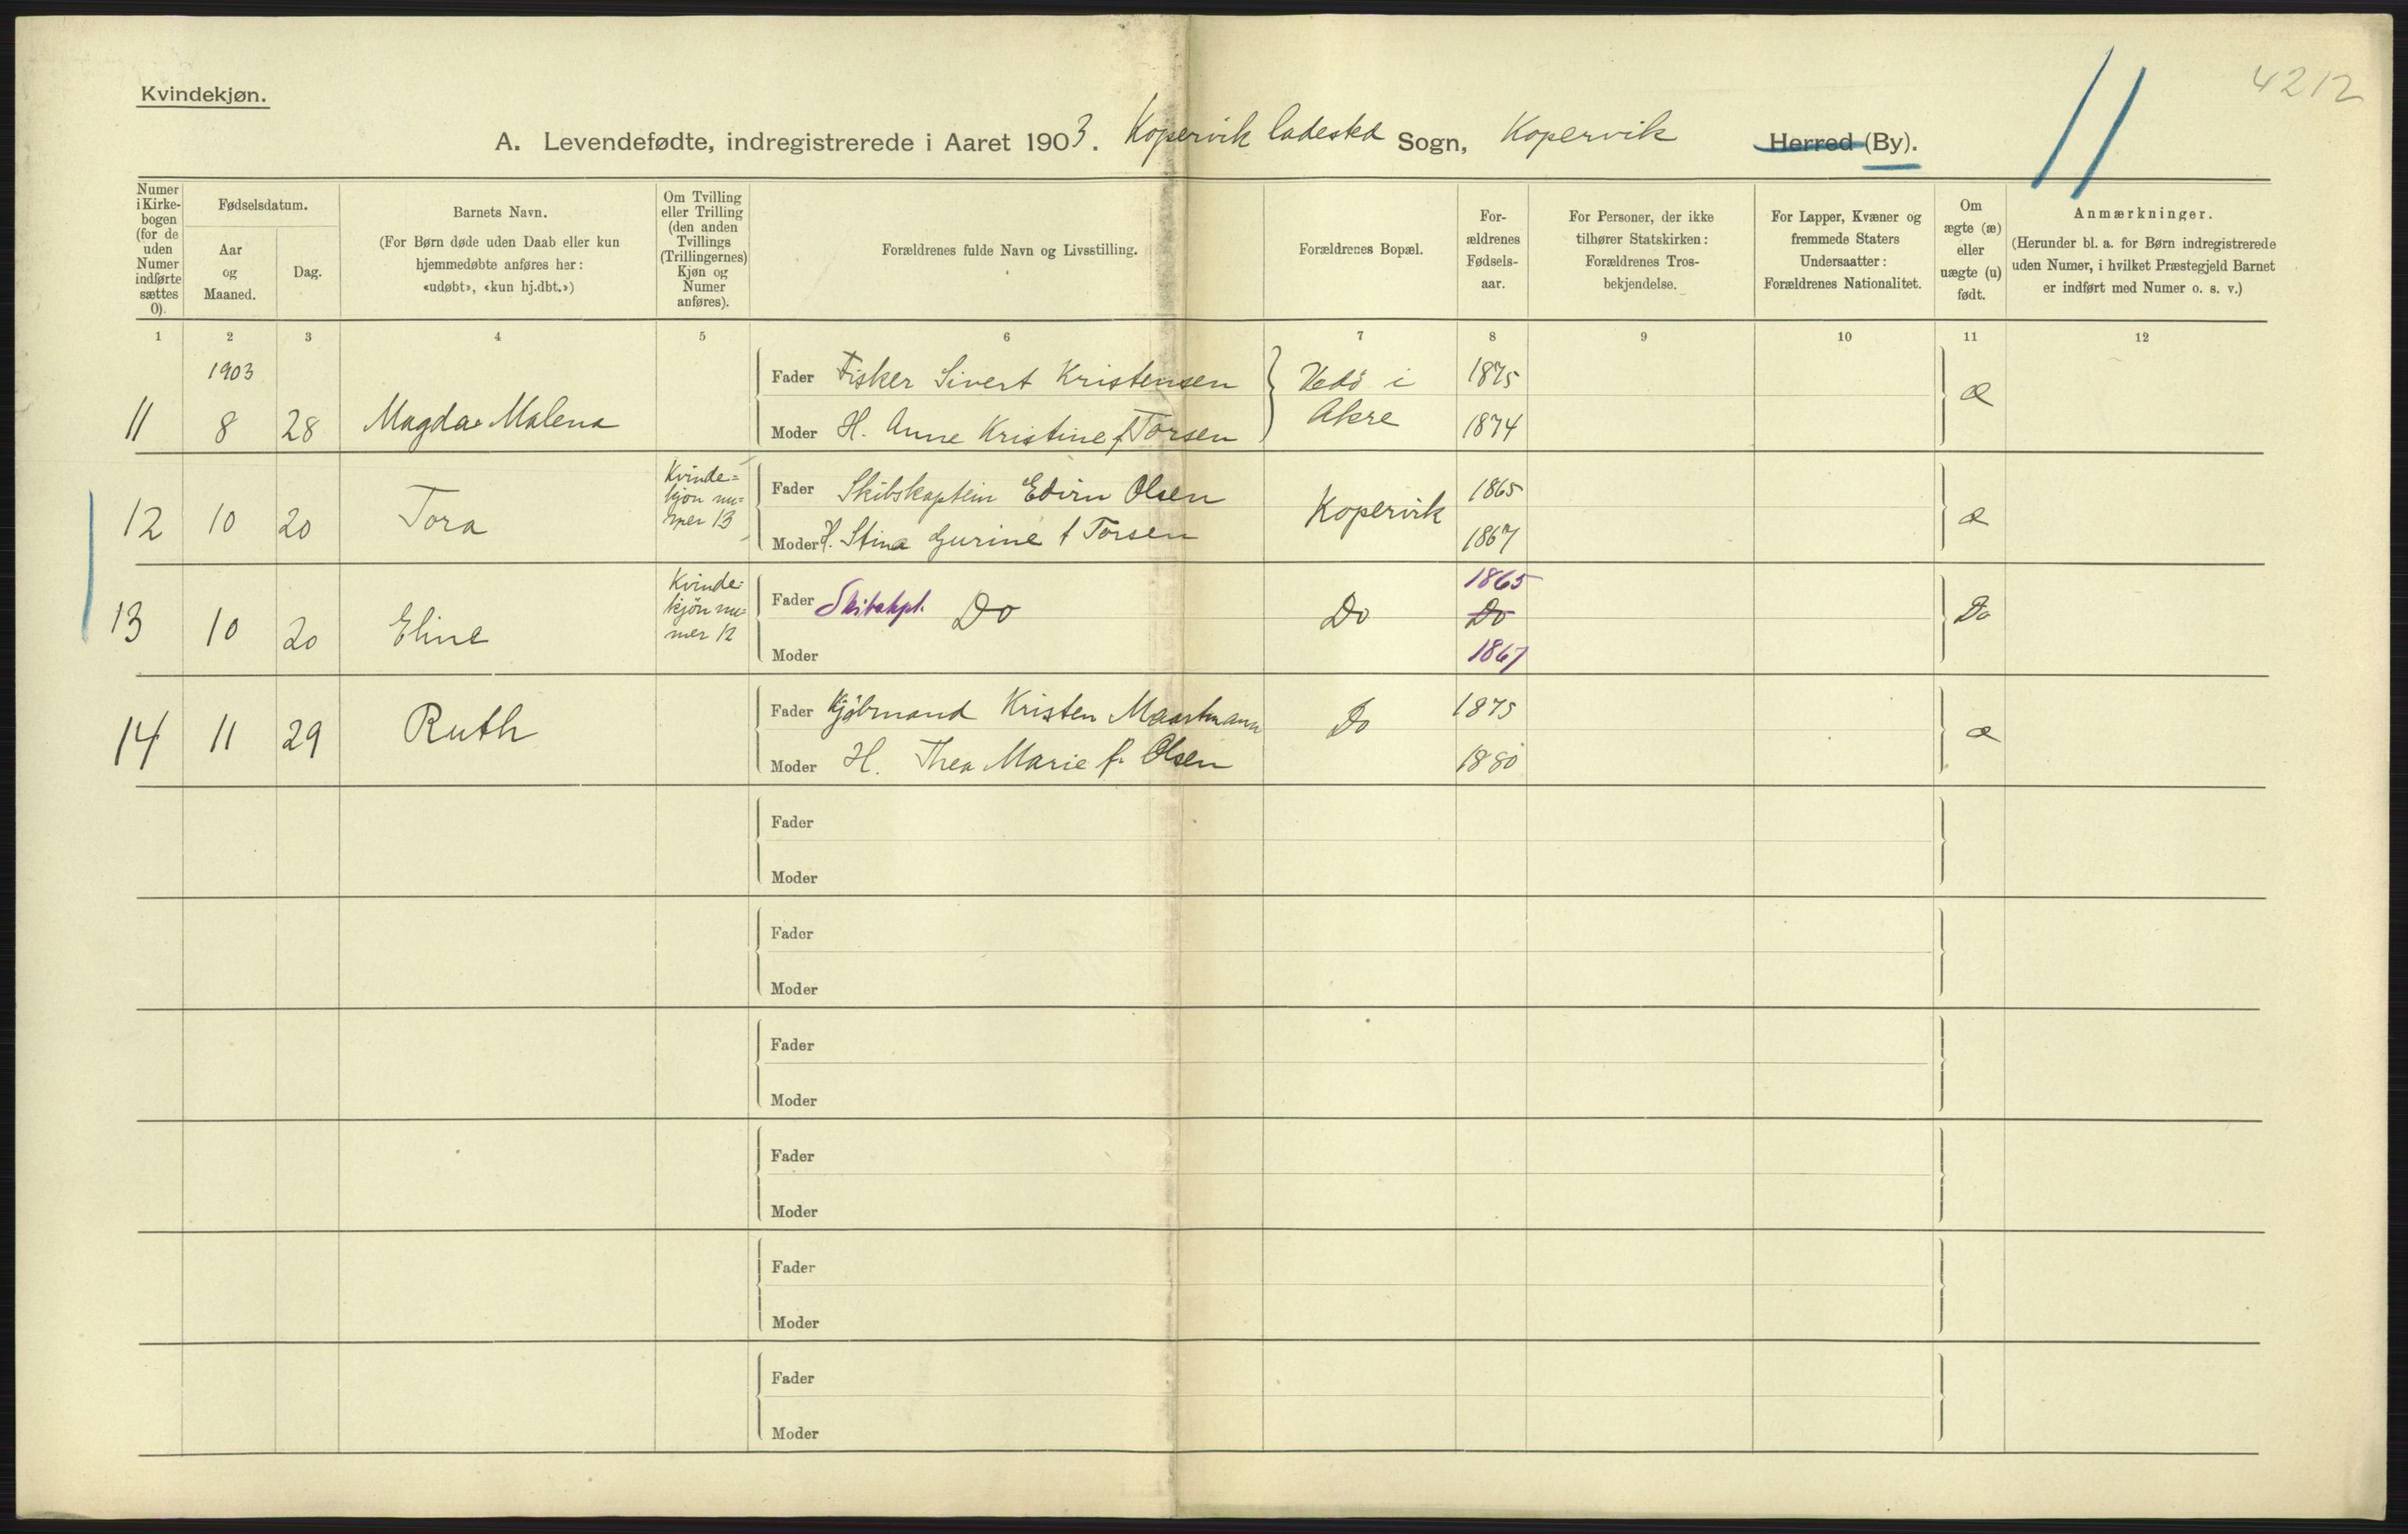 4212
Kvindekjøn.
11
A. Levendefødte, indregistrerede i Aaret 1903. Kopervik ladested Sogn, Kopervik Herred (By).
Numer i Kirke- bogen (for de uden Numer indførte sættes 0).
Fødselsdatum.
Aar og Maaned.
Dag.
Barnets Navn.
(For Børn døde uden Daab eller kun hjemmedøbte anføres her: «udøbt», «kun hj.dbt.»)
Om Tvilling eller Trilling (den anden Tvillings (Trillingernes) Kjøn og Numer anføres).
Forældrenes fulde Navn og Livsstilling.
Forældrenes Bopæl.
For- ældrenes Fødsels- aar.
For Personer, der ikke tilhører Statskirken: Forældrenes Tros- bekjendelse.
For Lapper, Kvæner og fremmede Staters Undersaatter: Forældrenes Nationalitet.
Om ægte (æ) eller uægte (u) født.
Anmærkninger.
(Herunder bl. a. for Børn indregistrerede uden Numer, i hvilket Præstegjeld Barnet er indført med Numer o. s. v.)
1 2 3 4 5 6 7 8 9 10 11 12
1903
11 8 28 Magda Malena
Fader Fisker Sivert Kristensen Vedö i 1875 æ
Moder H. Anne Kristine f Torsen Akre 1874
12 10 20 Tora Kvinde= kjön nu= mer 13
Fader Skibskaptein Edvin Olsen Kopervik 1865 æ
Moder H. Stina Gurine f Torsen 1867
13 10 20 Eline Kvinde= kjön nu= mer 12
Fader Skibskpt. Do Do 1865 Do Do
Moder 1867
14 11 29 Ruth
Fader Kjöbmand Kristen Maartmann Do 1875 æ
Moder H. Thea Marie f. Olsen 1880
Fader
Moder
Fader
Moder
Fader
Moder
Fader
Moder
Fader
Moder
Fader
Moder